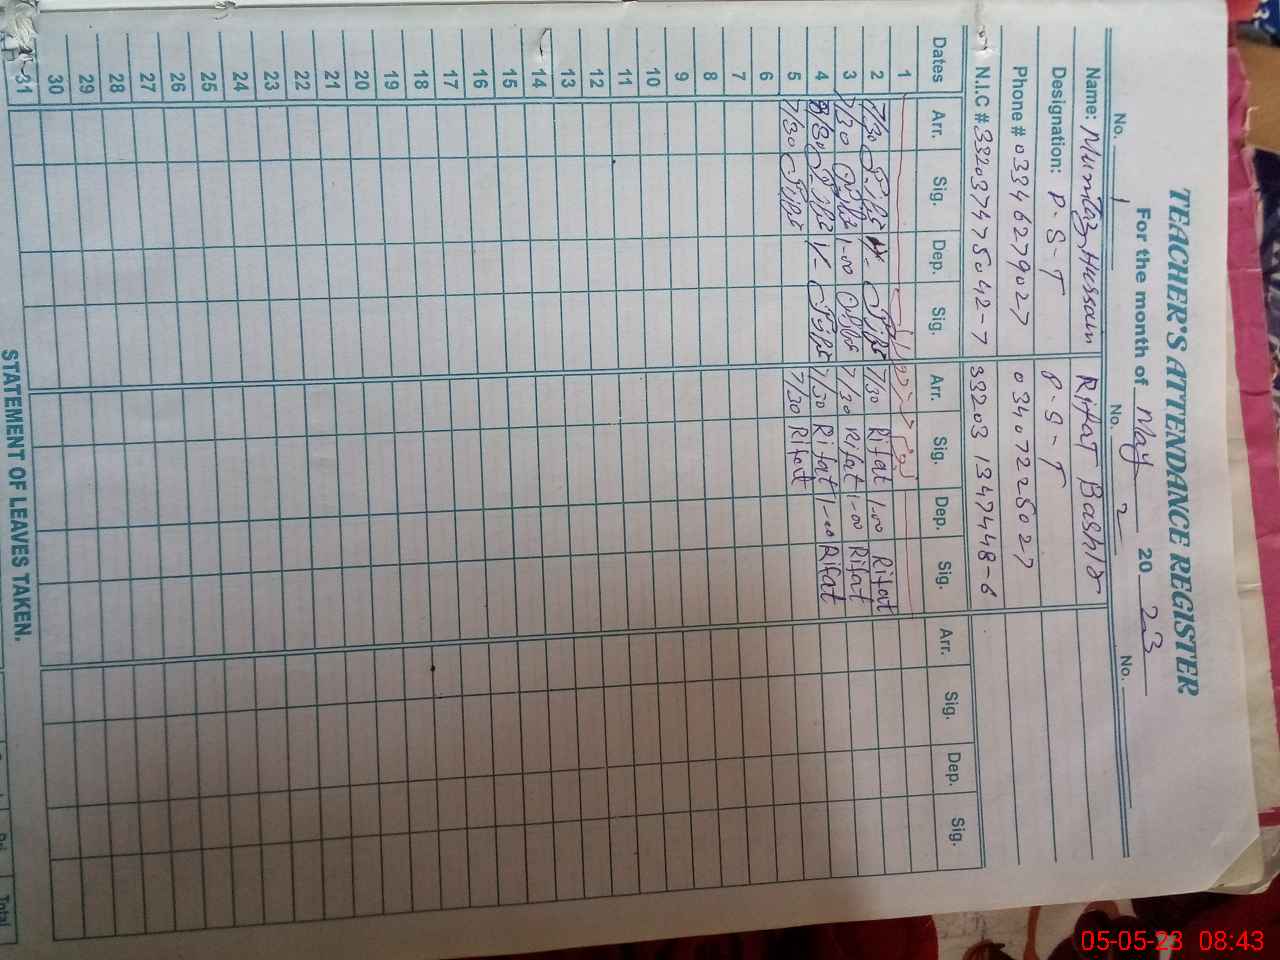 TEACHER'S ATTENDANCE REGISTER
For the month of May 2023
No. 1 No. 2 No.
Name: Mumtaz Hussain Rifat Bashir
Designation: P.S.T P.S.T
Phone # 03346279027 03407225027
N.I.C # 332037475042-7 33203 1347448-6
Dates Arr. Sig. Dep. Sig. Arr. Sig. Dep. Sig. Arr. Sig. Dep. Sig.
1
2 7/30 7/30 Rifat 1-00 Rifat
3 7/30 1-00 7/30 Rifat 1-00 Rifat
4 1/- 7/30 Rifat 1-00 Rifat
5 7/30 7/30 Rifat
6
7
8
9
10
11
12
13
14
15
16
17
18
19
20
21
22
23
24
25
26
27
28
29
30
31
STATEMENT OF LEAVES TAKEN.
Total
05-05-23 08:43